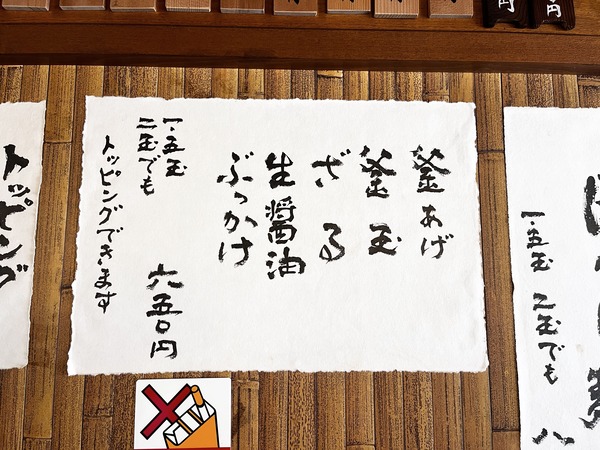 円
円
釜あげ
釜玉
ざる
生醤油
ぶっかけ
一・五玉
二玉でも
六五〇円
トッピングできます
トッピング
一・五玉 二玉でも
八